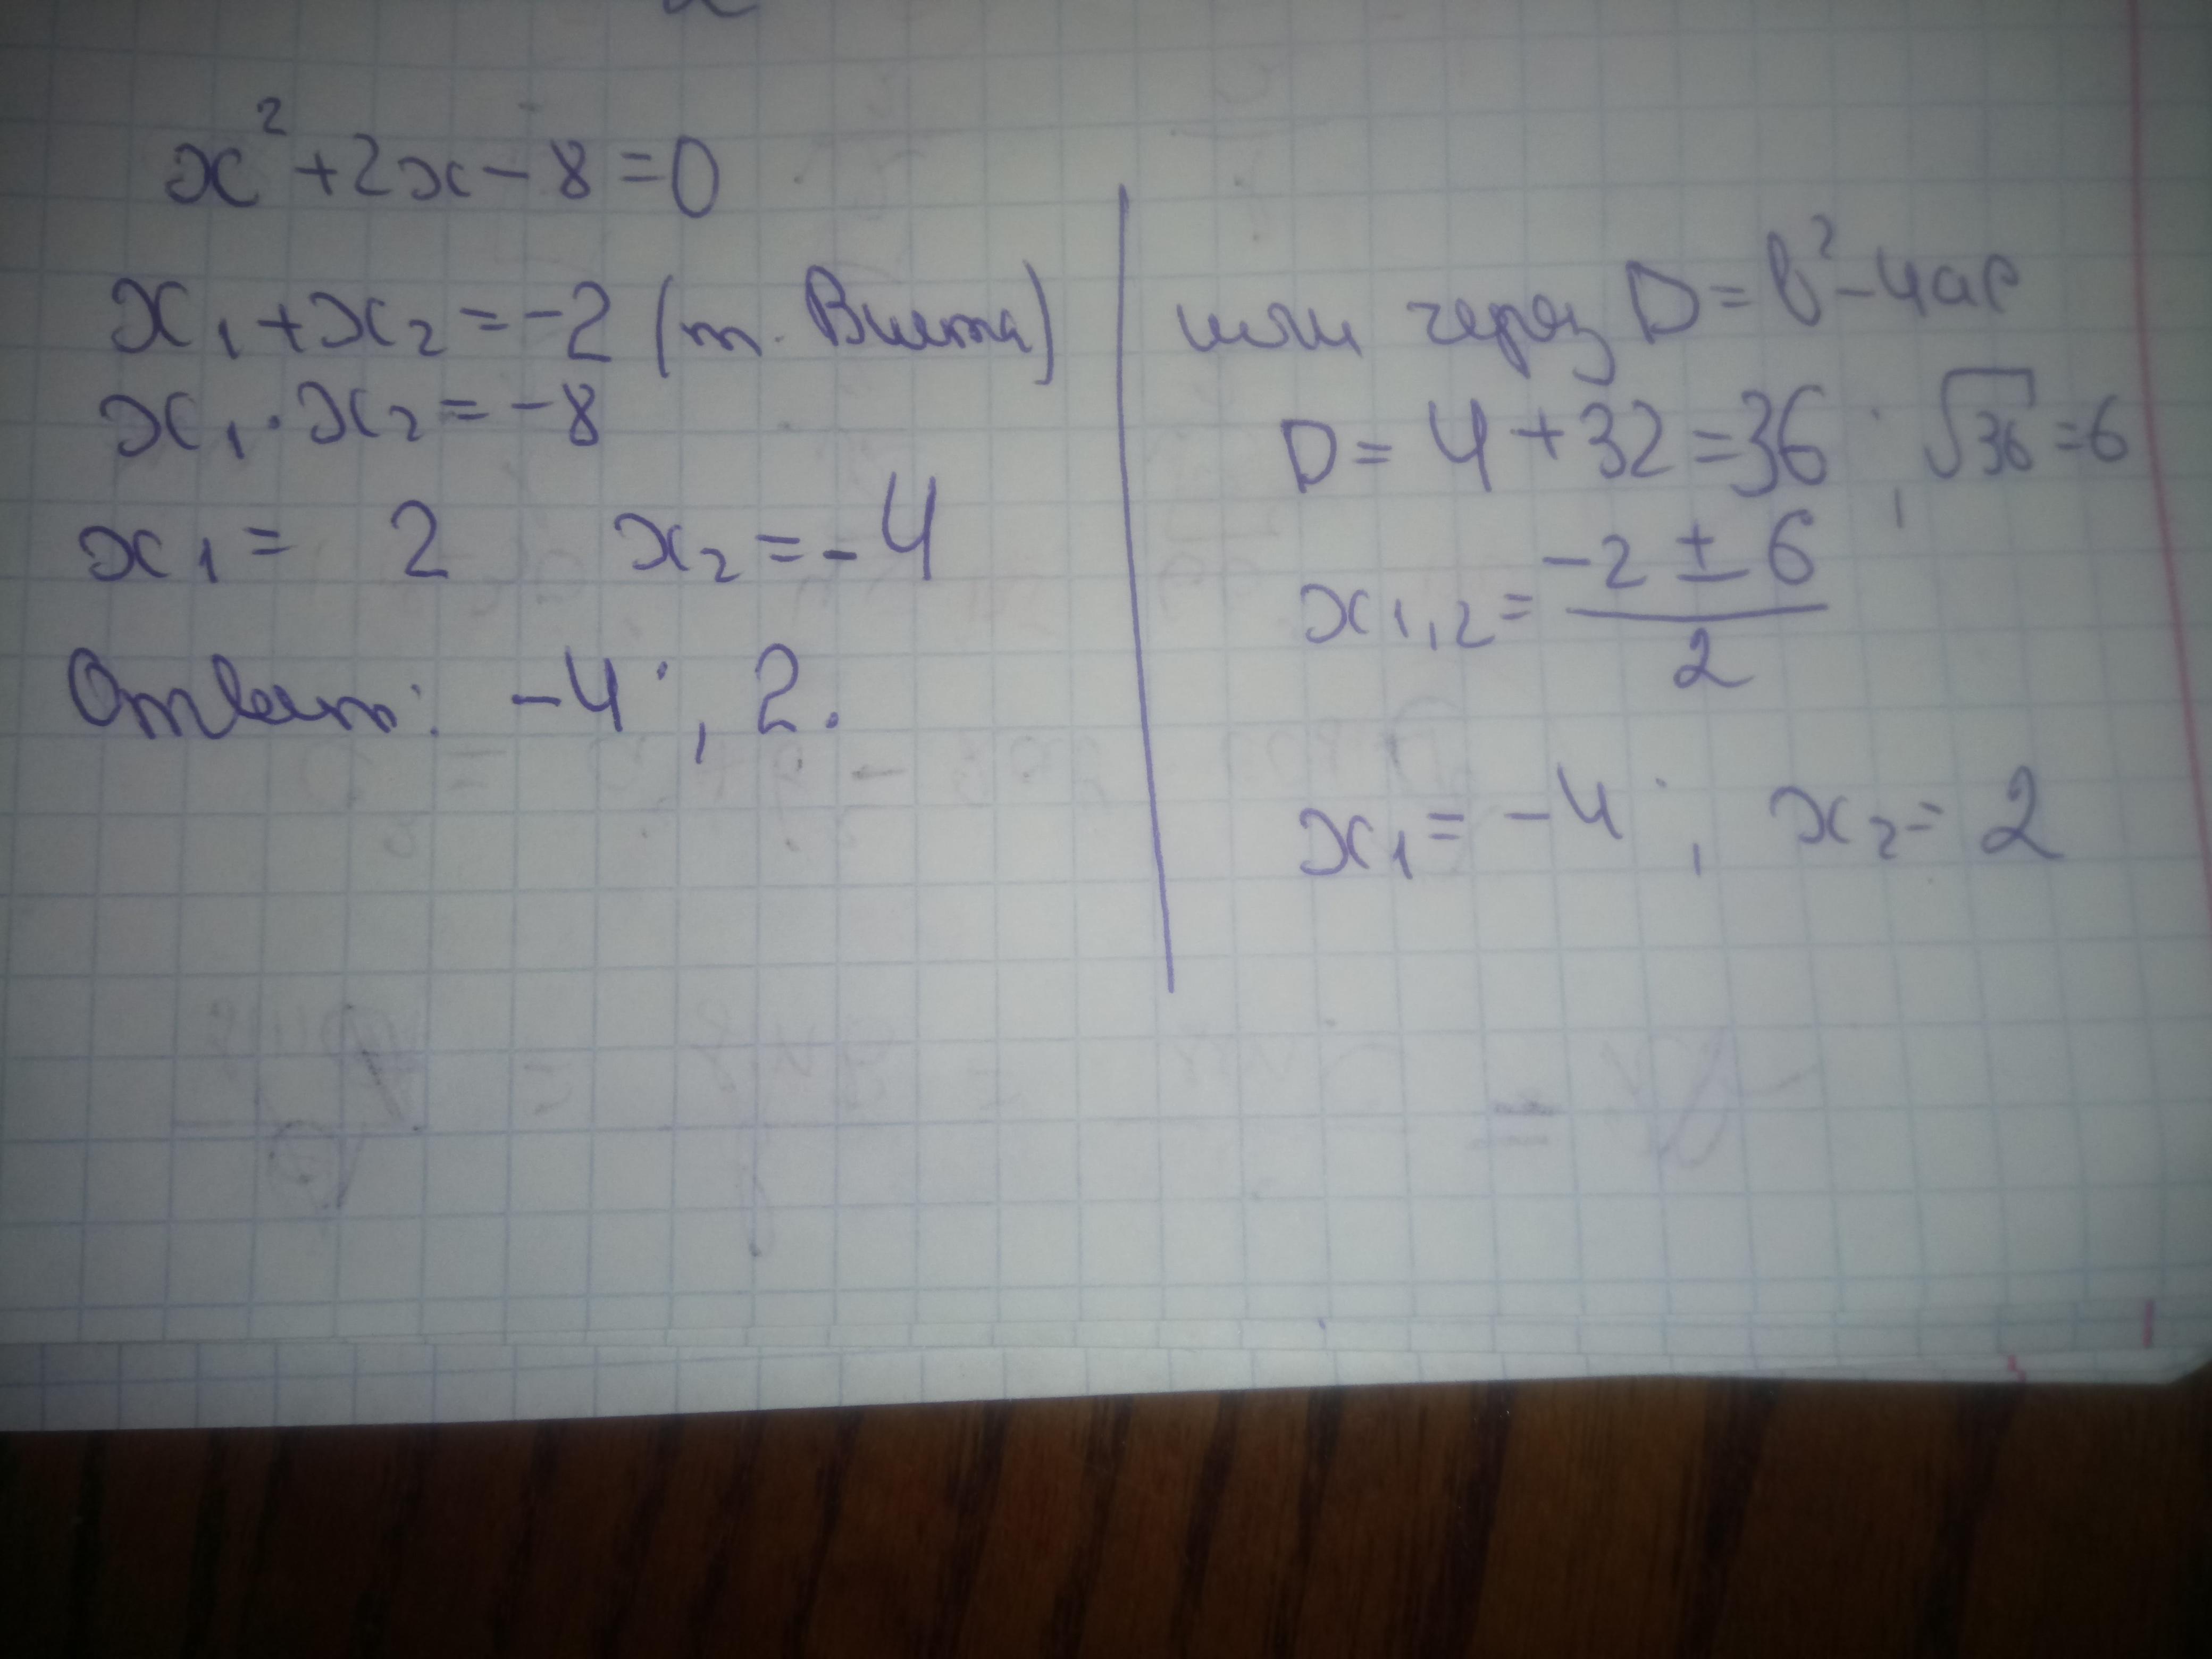 x² + 2x - 8 = 0
x₁ + x₂ = -2 (т. Виета)
x₁ · x₂ = -8
x₁ = 2 x₂ = -4
Ответ: -4; 2.
или через D = b² - 4ac
D = 4 + 32 = 36; √36 = 6
x₁,₂ = (-2 ± 6)/2
x₁ = -4; x₂ = 2